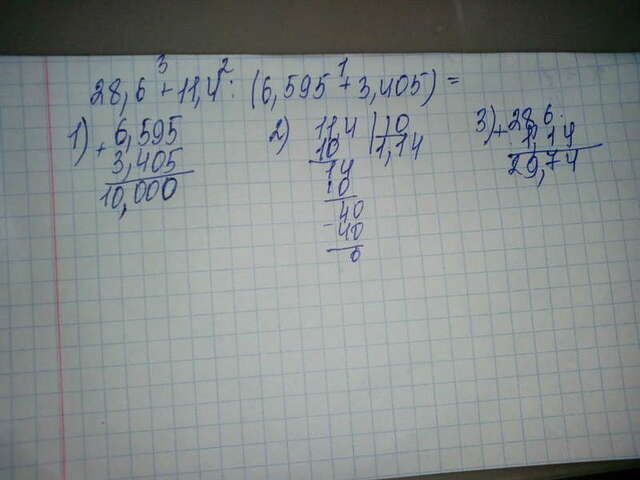 3 2 1
28,6 + 11,4 : (6,595 + 3,405) =
1) + 6,595
3,405
10,000
2) 11,4 | 10
10 1,14
14
10
40
- 40
0
3) + 28,6
1,14
29,74